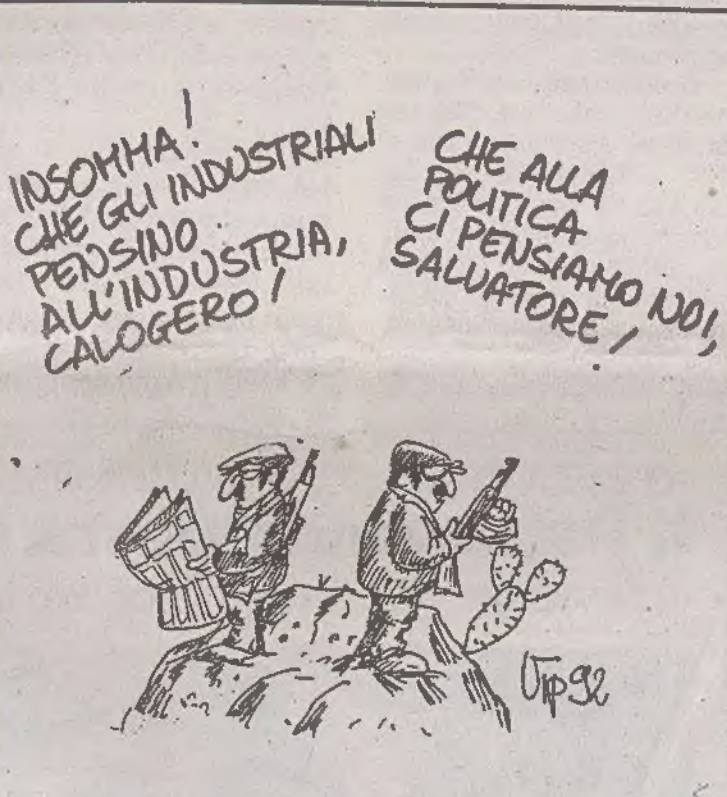 INSOMMA!
CHE GLI INDUSTRIALI
PENSINO
ALL'INDUSTRIA,
CALOGERO!
CHE ALLA
POLITICA
CI PENSIAMO NOI,
SALVATORE!
Vip 92